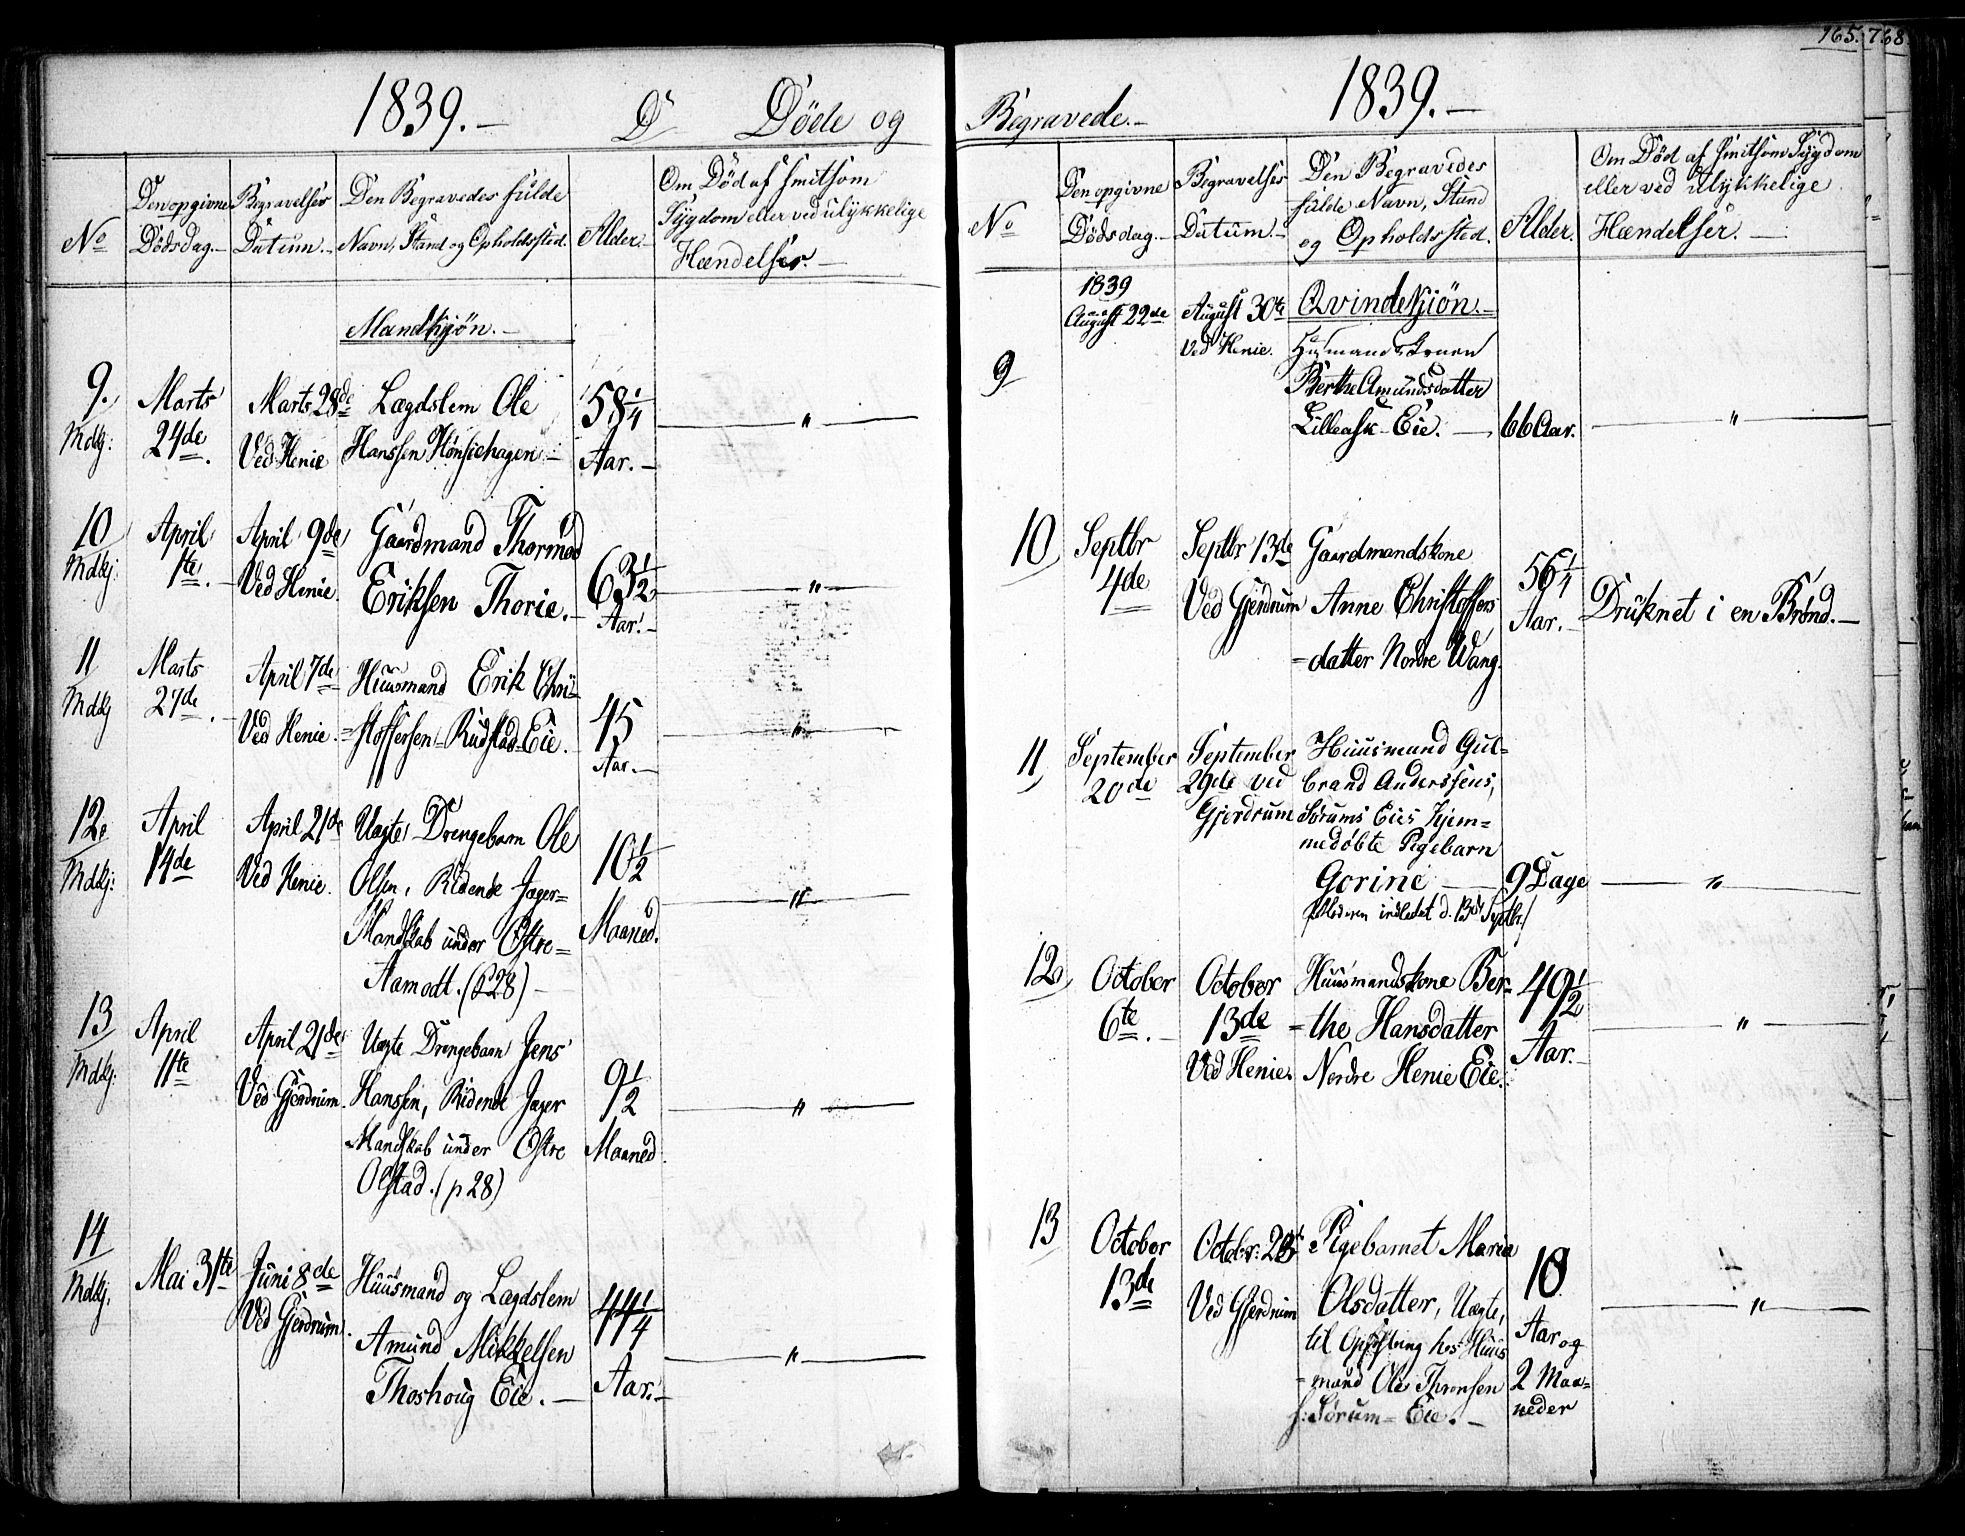 1839.-
D
Döde og
No
Den opgivne Dödsdag.-
Begravelses Datum.-
Den Begravedes fulde
Navn, Stand og Opholdssted.
Alder.-
Om Död af smitsom
Sygdom eller ved ulykkelige
Hændelser.-
Mandkjön.-
9.
Mdkj:
Marts
24de.
Marts 28de
Ved Henie
Lægdslem Ole
Hanssen Hönsiehagen-
58 1/4
Aar.-
"
10
Mdkj:
April
1te.
April 9de
Ved Henie.
Gaardmand Thormod
Eriksen Thorie.-
63 1/2
Aar.-
"
11
Mdkj
Marts
27de.
April 7de
Ved Henie.
Huusmand Erik Chri-
=stoffersen Rudstad-Eie.
45
Aar.-
"
12
Mdkj:
April
14de
April 21de
Ved Henie.
Uægte Drengebarn Ole
Olsen, Ridende Jæger=
Mandskab under Östre=
Aamodt. (p 28)-
10 1/2
Maaned.
"
13
Mdkj:
April
11te
April 21de
Ved Gjerdrum.
Uægte Drengebarn Jens
Hanssen, Ridende Jæger
Mandskab under Östre
Olstad. (p 28)
9 1/2
Maaned
"
14
Mdkj.
Mai 31te
Juni 8de
Ved Gjerdrum.
Huusmand og Lægdslem
Amund Mikkelsen
Thoshoug Eie.-
44 1/4
Aar.-
"
165. 768
Begravede.-
1839.-
No
Den opgivne
Dödsdag.-
Begravelses
Datum.-
Den Begravedes
fulde Navn, Stand
og Opholdssted.
Alder.
Om Död af smitsom Sygdom
eller ved ulykkelige
Hændelser.-
Qvindekjön.-
9
1839
August 22de
August 30te
Ved Henie.
Huusmandskonen
Berthe Amundsdatter
Lilleask-Eie.-
66 Aar.
"
10
Septbr
4de
Septbr 13de
Ved Gjerdrum
Gaardmandskone
Anne Christoffers
=datter Nordre Wang.
56 1/4
Aar.-
Druknet i en Brönd.-
11
September
20de
September
29de ved
Gjerdrum
Huusmand Gul=
brand Anderssens,
Sörums Eies hjem=
medöbte Pigebarn
Gorine
(Moderen indledet d. 13de Septbr.)
9 Dage
"
12
October
6te.-
October
13de
Ved Henie.
Huusmandskone Ber=
=the Hansdatter
Nordre Henie Eie.
49 1/2
Aar.-
"
13
October
13de
Octobr:
Ved Gjerdrum
Pigebarnet Maria
Olsdatter, Uægte,
til Opfostring hos Huus
=mand Ole Thronsen
s: Sörum-Eie.-
10
Aar og
2 Maa=
neder
"